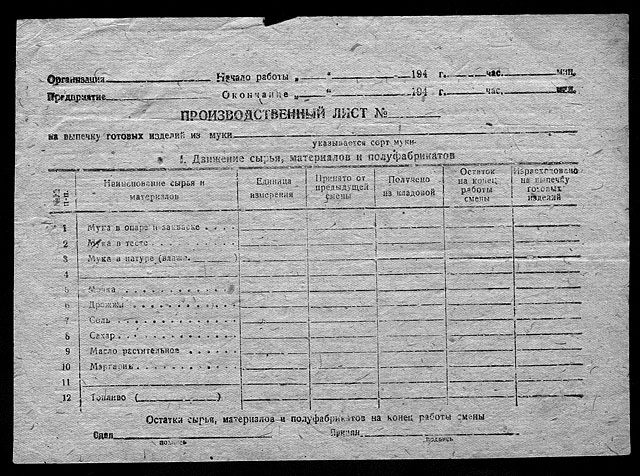 Организация Начало работы „ “ 194 г. час. мин.
Предприятие Окончание „ “ 194 г. час. мин.
ПРОИЗВОДСТВЕННЫЙ ЛИСТ №
на выпечку готовых изделий из муки
указывается сорт муки
1. Движение сырья, материалов и полуфабрикатов
№№ п-п. Наименование сырья и материалов Единица измерения Принято от предыдущей смены Получено из кладовой Остаток на конец работы смены Израсходовано на выпечку готовых изделий
1 Мука в опаре и закваске . . . .
2 Мука в тесте . . . . . . . . .
3 Мука в натуре (влажн. )
4
5 Мочка . . . . . . . . . . .
6 Дрожжи . . . . . . . . . . .
7 Соль . . . . . . . . . . . .
8 Сахар . . . . . . . . . . .
9 Масло растительное . . . . .
10 Маргарин . . . . . . . . . .
11
12 Топливо ( )
Остатки сырья, материалов и полуфабрикатов на конец работы смены
Сдал Принял
подпись подпись